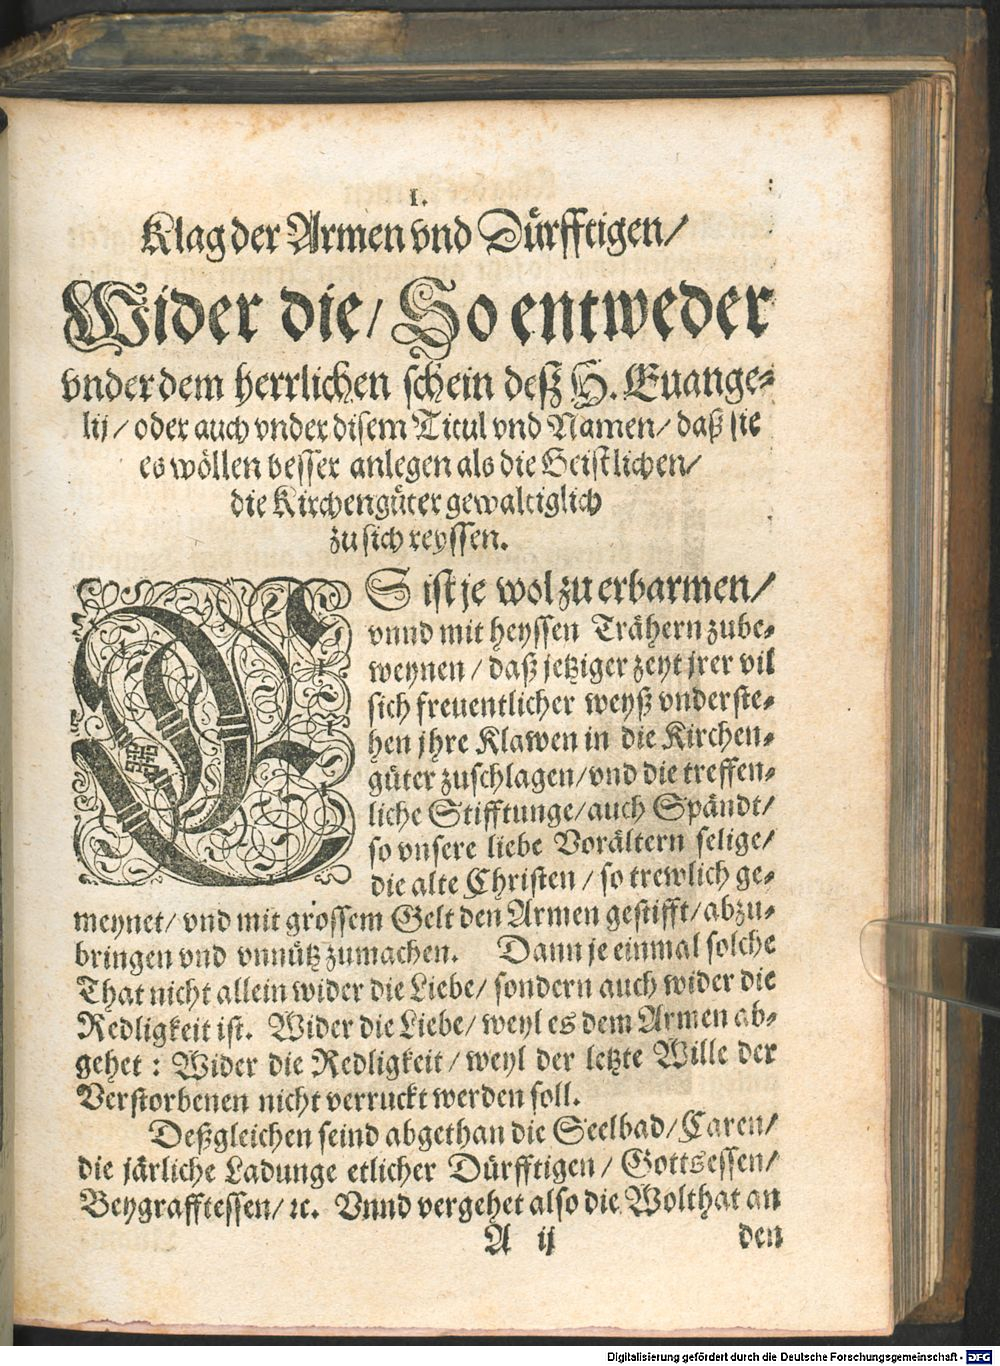 I.
Klag der Armen vnd Dürfftigen/
Wider die/ So entweder
vnder dem herrlichen schein deß H. Euange-
lij/ oder auch vnder disem Titul vnd Namen/ daß sie
es wöllen besser anlegen als die Geistlichen/
die Kirchengüter gewaltiglich
zu sich reyssen.
ES ist je wol zu erbarmen/
vnnd mit heyssen Trähern zube-
weynen/ daß jetziger zeyt jrer vil
sich freuentlicher weyß vnderste-
hen jhre Klawen in die Kirchen-
güter zuschlagen/ vnd die treffen-
liche Stifftunge/ auch Spändt/
so vnsere liebe Vorältern selige/
die alte Christen/ so trewlich ge-
meynet/ vnd mit grossem Gelt den Armen gestifft/ abzu-
bringen vnd vnnütz zumachen. Dann je einmal solche
That nicht allein wider die Liebe/ sondern auch wider die
Redligkeit ist. Wider die Liebe/ weyl es dem Armen ab-
gehet: Wider die Redligkeit/ weyl der letzte Wille der
Verstorbenen nicht verruckt werden soll.
Deßgleichen seind abgethan die Seelbad/ Caren/
die järliche Ladunge etlicher Dürfftigen/ Gottsessen/
Beygrafftessen/ ꝛc. Vnnd vergehet also die Wolthat an
A ij den
Digitalisierung gefördert durch die Deutsche Forschungsgemeinschaft - DFG